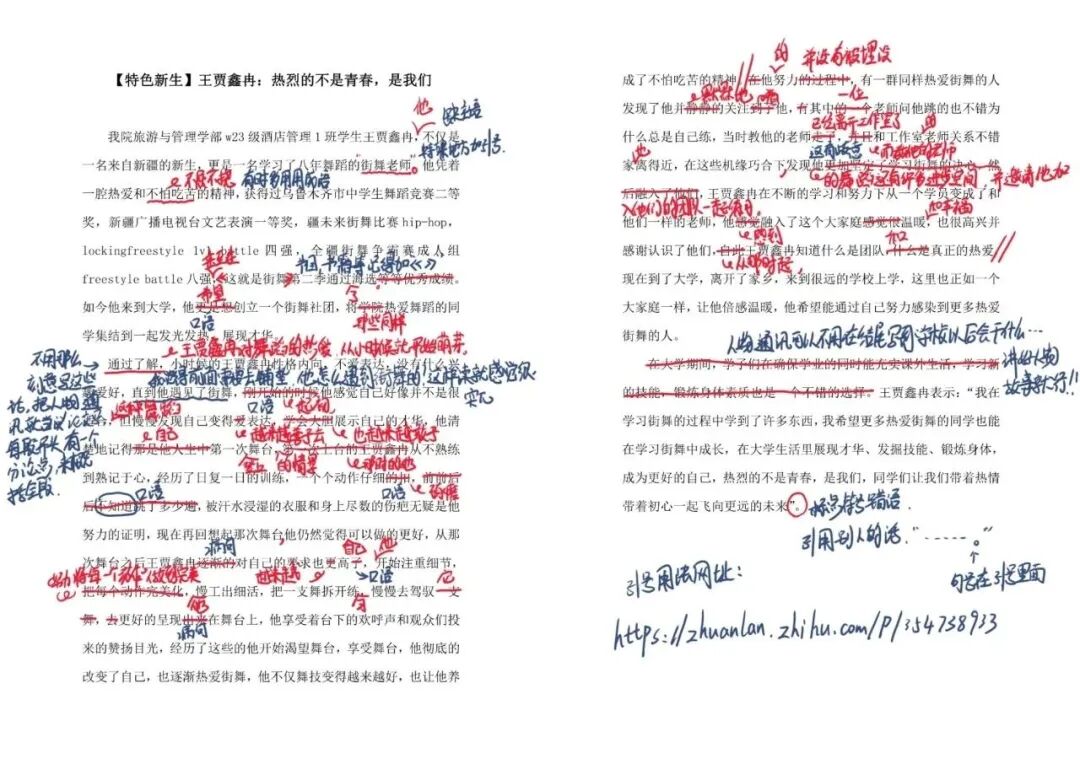 【特色新生】王贾鑫冉：热烈的不是青春，是我们
他
缺主语
我院旅游与管理学部w23级酒店管理1班学生王贾鑫冉，不仅是
特殊地方加引号
一名来自新疆的新生，更是一名学习了八年舞蹈的街舞老师。他凭着
不怕不累
一腔热爱和不怕吃苦的精神，获得过乌鲁木齐市中学生舞蹈竞赛二等
奖，新疆广播电视台文艺表演一等奖，疆未来街舞比赛 hip-hop,
lockingfreestyle 1v1 battle 四强，全疆街舞争霸赛成人组
freestyle battle 八强，这就是街舞第二季通过海选等等优秀成绩。
希望
今
如今他来到大学，他更是想创立一个街舞社团，将学院热爱街舞的同
口语
那些同样
学集结到一起发光发热，展现才华。
王贾鑫冉对舞蹈的热爱从小时候就开始萌芽。
通过了解，小时候的王贾鑫冉性格内向，不爱表达，没有什么兴
趣爱好，直到他遇见了街舞，刚开始的时候他感觉自己好像并不是很
口语
台，但慢慢发现自己变得爱表达，学会大胆展示自己的才华，他清
自己
越来越善于去
也越来越敢于
楚地记得那是他人生中第一次舞台，第一次上台的王贾鑫冉从不熟练
登上
的情景
那时的他
到熟记于心，经历了日复一日的训练，一个个动作仔细的扣，前前后
口语
口语
后不知道跳了多少遍，被汗水浸湿的衣服和身上尽数的伤疤无疑是他
努力的证明，现在再回想起那次舞台他仍然觉得可以做的更好，从那
病句
自己
他
次舞台之后王贾鑫冉逐渐的对自己的要求也更高了，开始注重细节，
越来越
口语
它
把每个动作完美化，慢工出细活，把一支舞拆开练，慢慢去驾驭一支
舞，去更好的呈现出来在舞台上，他享受着台下的欢呼声和观众们投
病句
来的赞扬目光，经历了这些的他开始渴望舞台，享受舞台，他彻底的
改变了自己，也逐渐热爱街舞，他不仅舞技变得越来越好，也让他养
的
并没有被埋没
成了不怕吃苦的精神，在他努力的过程中，有一群同样热爱街舞的人
默默地
一位
发现了他并静静的关注到了他，有其中的一个老师问他跳的也不错为
什么总是自己练，当时教他的老师走了，并且和工作室老师关系不错
他
家离得近，在这些机缘巧合下发现他更加坚定了学习街舞的决心，然
并邀请他加
后融入了他们，王贾鑫冉在不断的学习和努力下从一个学员变成了和
入他们的团队一起练习。
他们一样的老师，他感觉融入了这个大家庭感觉很温暖，也很高兴并
感到
和幸福
感谢认识了他们，自此王贾鑫冉知道什么是团队，什么是真正的热爱
从那时起，
现在到了大学，离开了家乡，来到很远的学校上学，这里也正如一个
大家庭一样，让他倍感温暖，他希望能通过自己努力感染到更多热爱
街舞的人。
人物通讯可以不用在结尾写同学极以后会干什么…
在大学期间，学子们在确保学业的同时能充实课外生活，学习新
讲好人物
的技能，锻炼身体素质也是一个不错的选择。王贾鑫冉表示：“我在
故事就行！！
学习街舞的过程中学到了许多东西，我希望更多热爱街舞的同学也能
在学习街舞中成长，在大学生活里展现才华、发掘技能、锻炼身体，
成为更好的自己，热烈的不是青春，是我们，同学们让我们带着热情
带着初心一起飞向更远的未来”。
标点符号错误
引用别人的话：“……。”
句号在引号里面
引号用法网址：
https://zhuanlan.zhihu.com/p/354758933